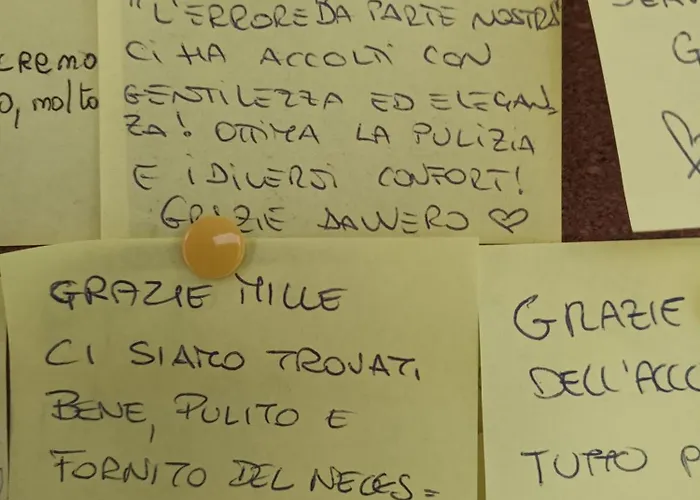 "L'ERRORE DA PARTE NOSTRA
CI HA ACCOLTI CON
GENTILEZZA ED ELEGAN,
ZA! OTTIMA LA PULIZIA
E I DIVERSI CONFORT!
GRAZIE DAVVERO ♡
CREMO
O, molto
G
GRAZIE MILLE
CI SIAMO TROVATI
BENE, PULITO E
FORNITO DEL NECES=
GRAZIE
DELL'ACCO
TUTTO P